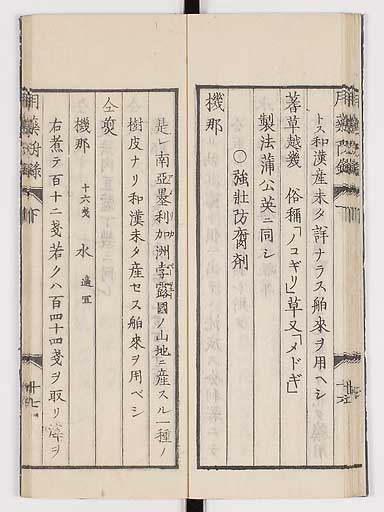 トス和漢産未タ詳ナラス舶來ヲ用ヘシ
蓍草越幾 俗稱「ノコギリ」草又「メドギ」
製法蒲公英ニ同シ
○強壯防腐劑
機那
是レ南亞墨利加洲孛露國ノ山地ニ産スル一種ノ
樹皮ナリ和漢未タ産セス舶來ヲ用ベシ
仝煎
機那 十六戔 水 適宜
右煮テ百十二戔若クハ百四十四戔ヲ取リ滓ヲ